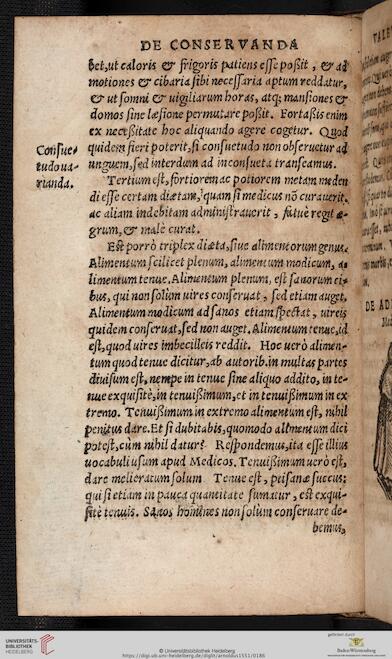 DE CONSERVANDA
bet, ut caloris & frigoris patiens esse poßit, & ad
motiones & cibaria sibi necessaria aptum reddatur,
& ut somni & uigiliarum horas, atq; mansiones &
domos sine læsione permutare poßit. Fortaßis enim
ex neceßitate hoc aliquando agere cogetur. Quod
quidem fieri poterit, si consuetudo non obseruetur ad
unguem, sed interdum ad inconsueta transeamus.
Consue-
tudo ua-
rianda.
Tertium est, fortiorem ac potiorem metam meden
di esse certam diætam, quam si medicus nõ curauerit,
ac aliam indebitam administrauerit, fatuè regit æ-
grum, & malè curat.
Est porrò triplex diæta, siue alimentorum genus.
Alimentum scilicet plenum, alimentum modicum, a-
limentum tenue. Alimentum plenum, est sanorum ci-
bus, qui non solùm uires conseruat, sed etiam auget.
Alimentum modicum ad sanos etiam spectat, uireis
quidem conseruat, sed non auget. Alimentum tenue, id
est, quod uires imbecilleis reddit. Hoc uerò alimen-
tum quod tenue dicitur, ab autorib. in multas partes
diuisum est, nempe in tenue sine aliquo addito, in te-
nue exquisitè, in tenuißimum, et in tenuißimum in ex
tremo. Tenuißimum in extremo alimentum est, nihil
penitus dare. Et si dubitabis, quomodo alimentum dici
potest, cùm nihil datur? Respondemus, ita esse illius
uocabuli usum apud Medicos. Tenuißimum uerò est,
dare melicratum solum. Tenue est, ptisanæ succus:
qui si etiam in pauca quantitate sumatur, est exqui-
sitè tenuis. Sanos homines non solùm conseruare de-
bemus,
VALE
DE AD
UNIVERSITÄTS-
BIBLIOTHEK
HEIDELBERG
https://digi.ub.uni-heidelberg.de/diglit/arnoldus1551/0186
© Universitätsbibliothek Heidelberg
gefördert durch
Baden-Württemberg